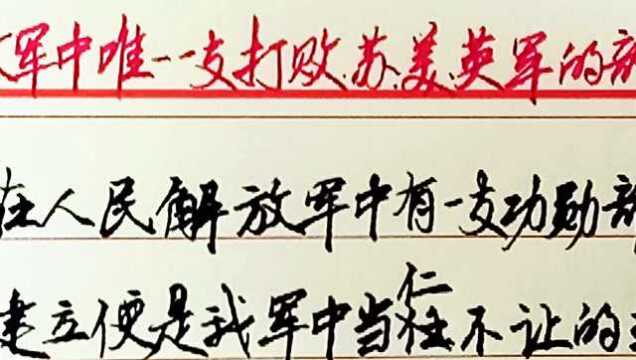 军中唯一支打败苏、美、英军的
在人民解放军中有一支功勋部
建立便是我军中当仁不让的